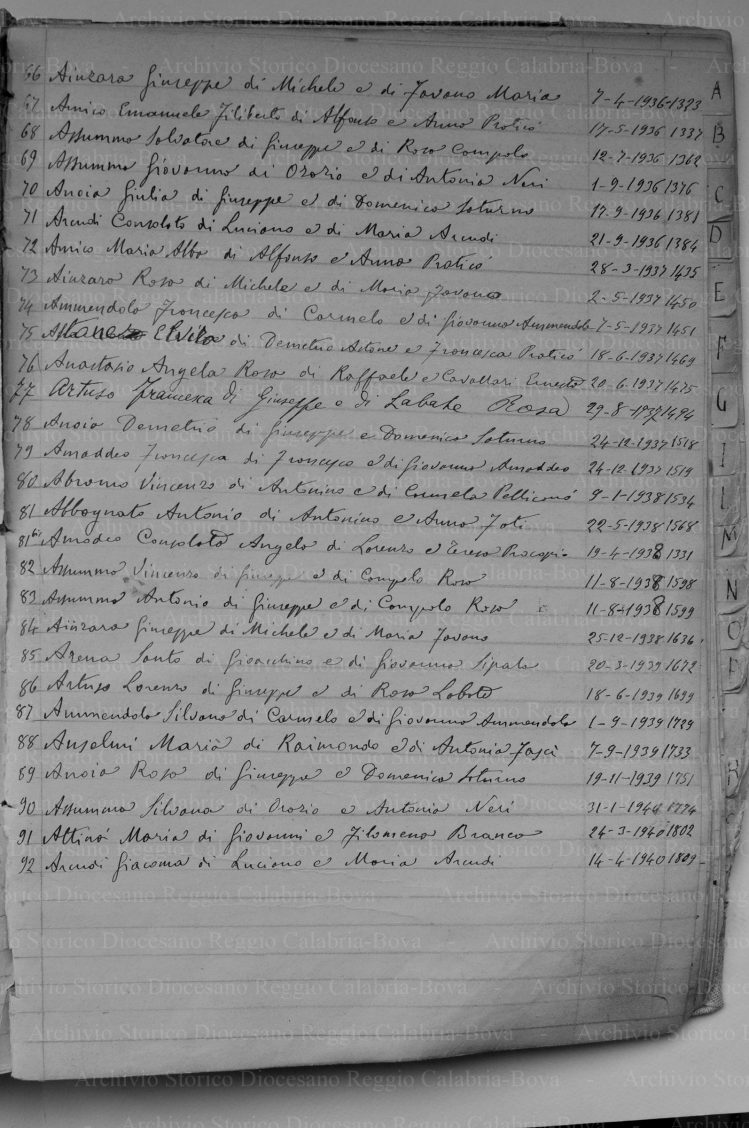 66 Ainzara Giuseppe di Michele e di Favano Maria 7-4-1936 1323
67 Amico Emanuele Filiberto di Alfonso e Anna Praticò 17-5-1936 1337
68 Assumma Salvatore di Giuseppe e di Rosa Campolo 12-7-1936 1362
69 Assumma Giovanna di Orazio e di Antonia Neri 1-9-1936 1376
70 Anoia Giulia di Giuseppe e di Domenica Saturno 17-9-1936 1381
71 Arcudi Consolato di Luciano e di Maria Arcudi 21-9-1936 1384
72 Amico Maria Alba di Alfonso e Anna Praticò 28-3-1937 1435
73 Ainzara Rosa di Michele e di Maria Favano 2-5-1937 1450
74 Ammendola Francesca di Carmelo e di Giovanna Ammendola 7-5-1937 1451
75 Elvira di Demetrio e Francesca Praticò 18-6-1937 1469
76 Anastasio Angela Rosa di Raffaele e Cavallari Ernesta 20-6-1937 1475
77 Artuso Francesca di Giuseppe e di Labate Rosa 29-8-1937 1494
78 Anoia Demetrio di Giuseppe e Domenica Saturno 24-12-1937 1518
79 Amaddeo Francesca di Francesco e di Giovanna Amaddeo 24-12-1937 1519
80 Abramo Vincenzo di Antonino e di Carmela Pellicanò 9-1-1938 1534
81 Abbagnato Antonio di Antonino e Anna Foti 22-5-1938 1568
81 bis Amodeo Consolato Angelo di Lorenzo e Teresa Procopio 19-4-1938 1331
82 Assumma Vincenzo di Giuseppe e di Campolo Rosa 11-8-1938 1598
83 Assumma Antonio di Giuseppe e di Campolo Rosa 11-8-1938 1599
84 Ainzara Giuseppe di Michele e di Maria Favano 25-12-1938 1636
85 Arena Santo di Gioacchino e di Giovanna Sipala 20-3-1939 1672
86 Artuso Lorenzo di Giuseppe e di Rosa Labate 18-6-1939 1699
87 Ammendola Silvana di Carmelo e di Giovanna Ammendola 1-9-1939 1729
88 Anselmi Maria di Raimondo e di Antonia Fasci 7-9-1939 1733
89 Anoia Rosa di Giuseppe e Domenica Saturno 19-11-1939 1751
90 Assumma Silvana di Orazio e Antonia Neri 31-1-1940 1774
91 Attinà Maria di Giovanni e Filomena Branca 24-3-1940 1802
92 Arcudi Giacoma di Luciano e Maria Arcudi 14-4-1940 1809
A
B
C
D
E
F
G
I
L
M
N
O
P
R
Archivio Storico Diocesano Reggio Calabria-Bova